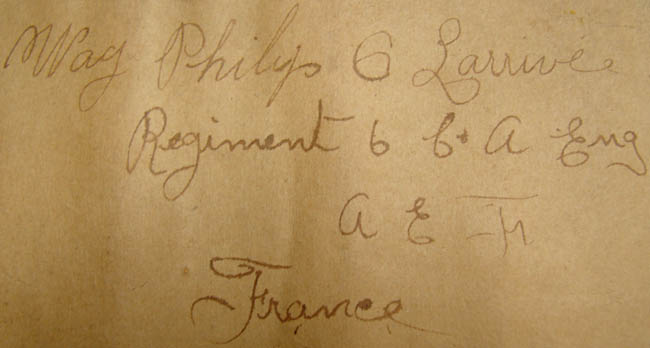 Wag Philips C Larrivée
Regiment 6 Co A Eng
A E F
France